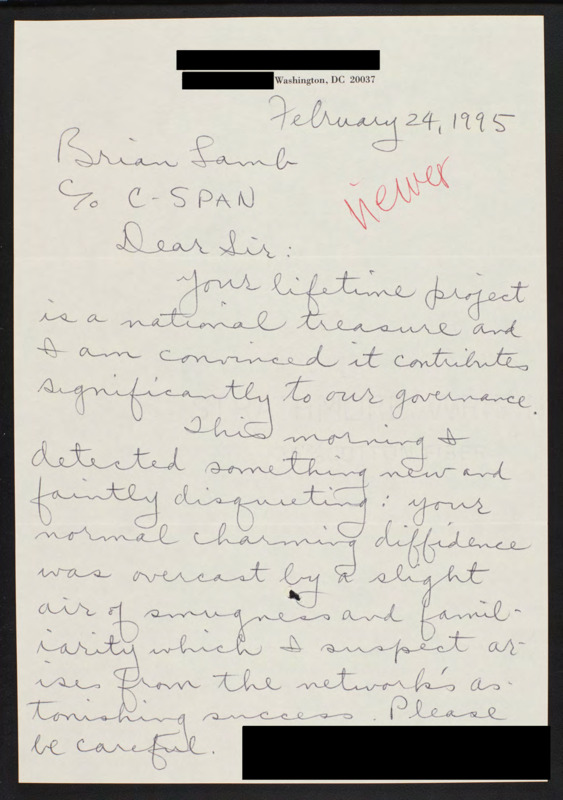 Washington, DC 20037
February 24, 1995
Brian Lamb
c/o C-SPAN
viewer
Dear Sir:
Your lifetime project
is a national treasure and
I am convinced it contributes
significantly to our governance.
This morning I
detected something new and
faintly disquieting: your
normal charming diffidence
was overcast by a slight
air of smugness and famil-
iarity which I suspect ar-
ises from the network's as-
tonishing success. Please
be careful.